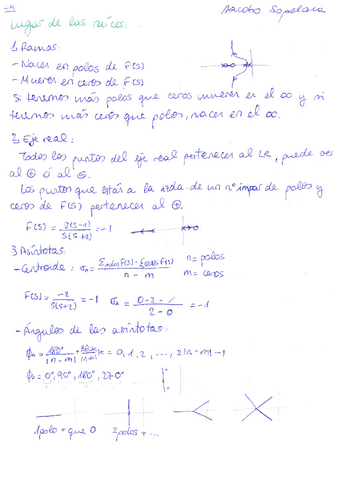 Lugar de las raíces:
1. Ramas:
- Nacen en polos de F(s)
- Mueren en ceros de F(s)
Si tenemos más polos que ceros mueren en el ∞ y si
tenemos más ceros que polos, nacen en el ∞.
2. Eje real:
Todos los puntos del eje real pertenecen al LR, puede ser
al ⊕ ó al ⊖.
Los puntos que están a la izda de un nº impar de polos y
ceros de F(s) pertenecen al ⊕.
F(s) = 2(s-1)/s(s+2) = -1
3. Asíntotas:
- Centroide: σₐ = Σpolos F(s) - Σceros F(s) / n - m n = polos
m = ceros
F(s) = -2/s(s+2) = -1 σₐ = 0-2-/ / 2-0 = -1
- Ángulos de las asíntotas:
k = 0, 1, 2, ..., 2|n-m|-1
= 0°, 90°, 180°, 270°
1 polo + que 0 2 polos + ...